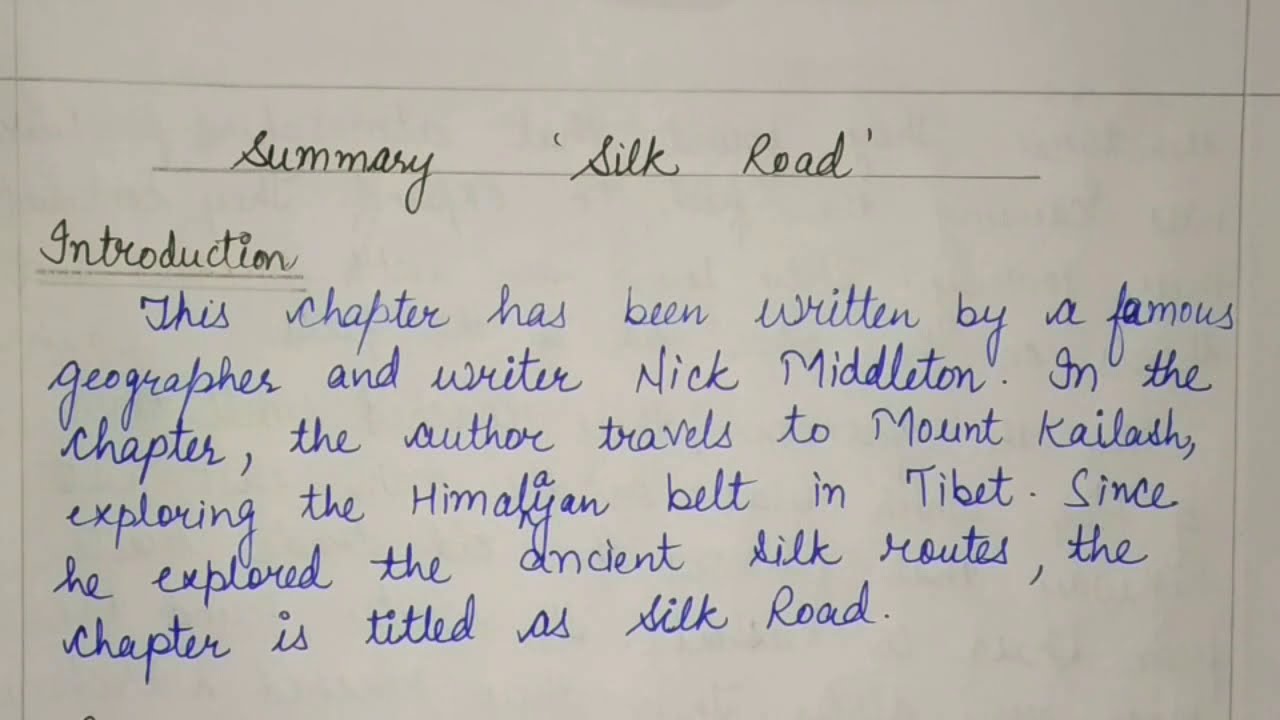 Summary 'Silk Road'
Introduction
This chapter has been written by a famous
geographer and writer Nick Middleton. In the
chapter, the author travels to Mount Kailash,
exploring the Himalayan belt in Tibet. Since
he explored the ancient silk routes, the
chapter is titled as Silk Road.